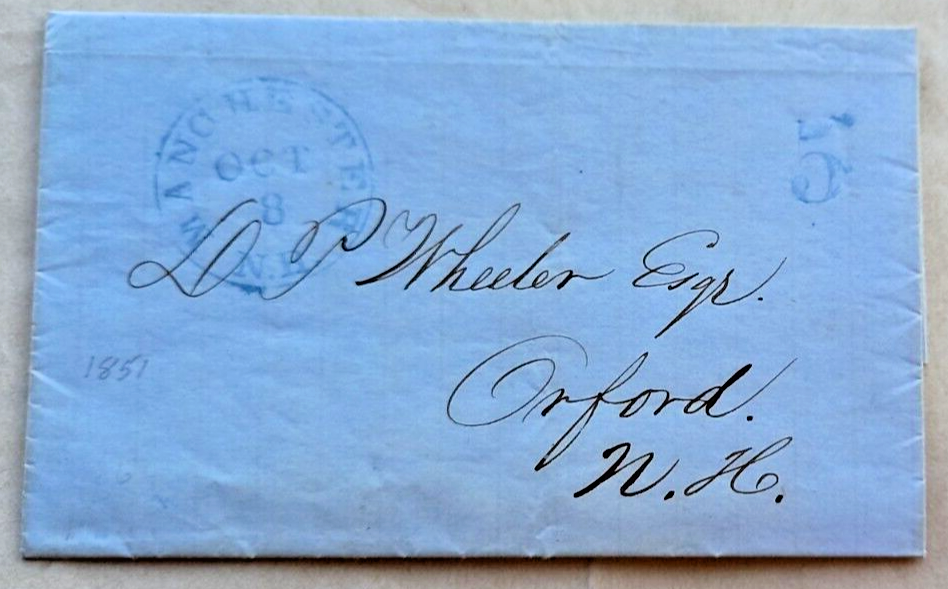 MANCHESTER
OCT
8
N.H
D P Wheeler Esqr.
Orford.
N. H.
1851